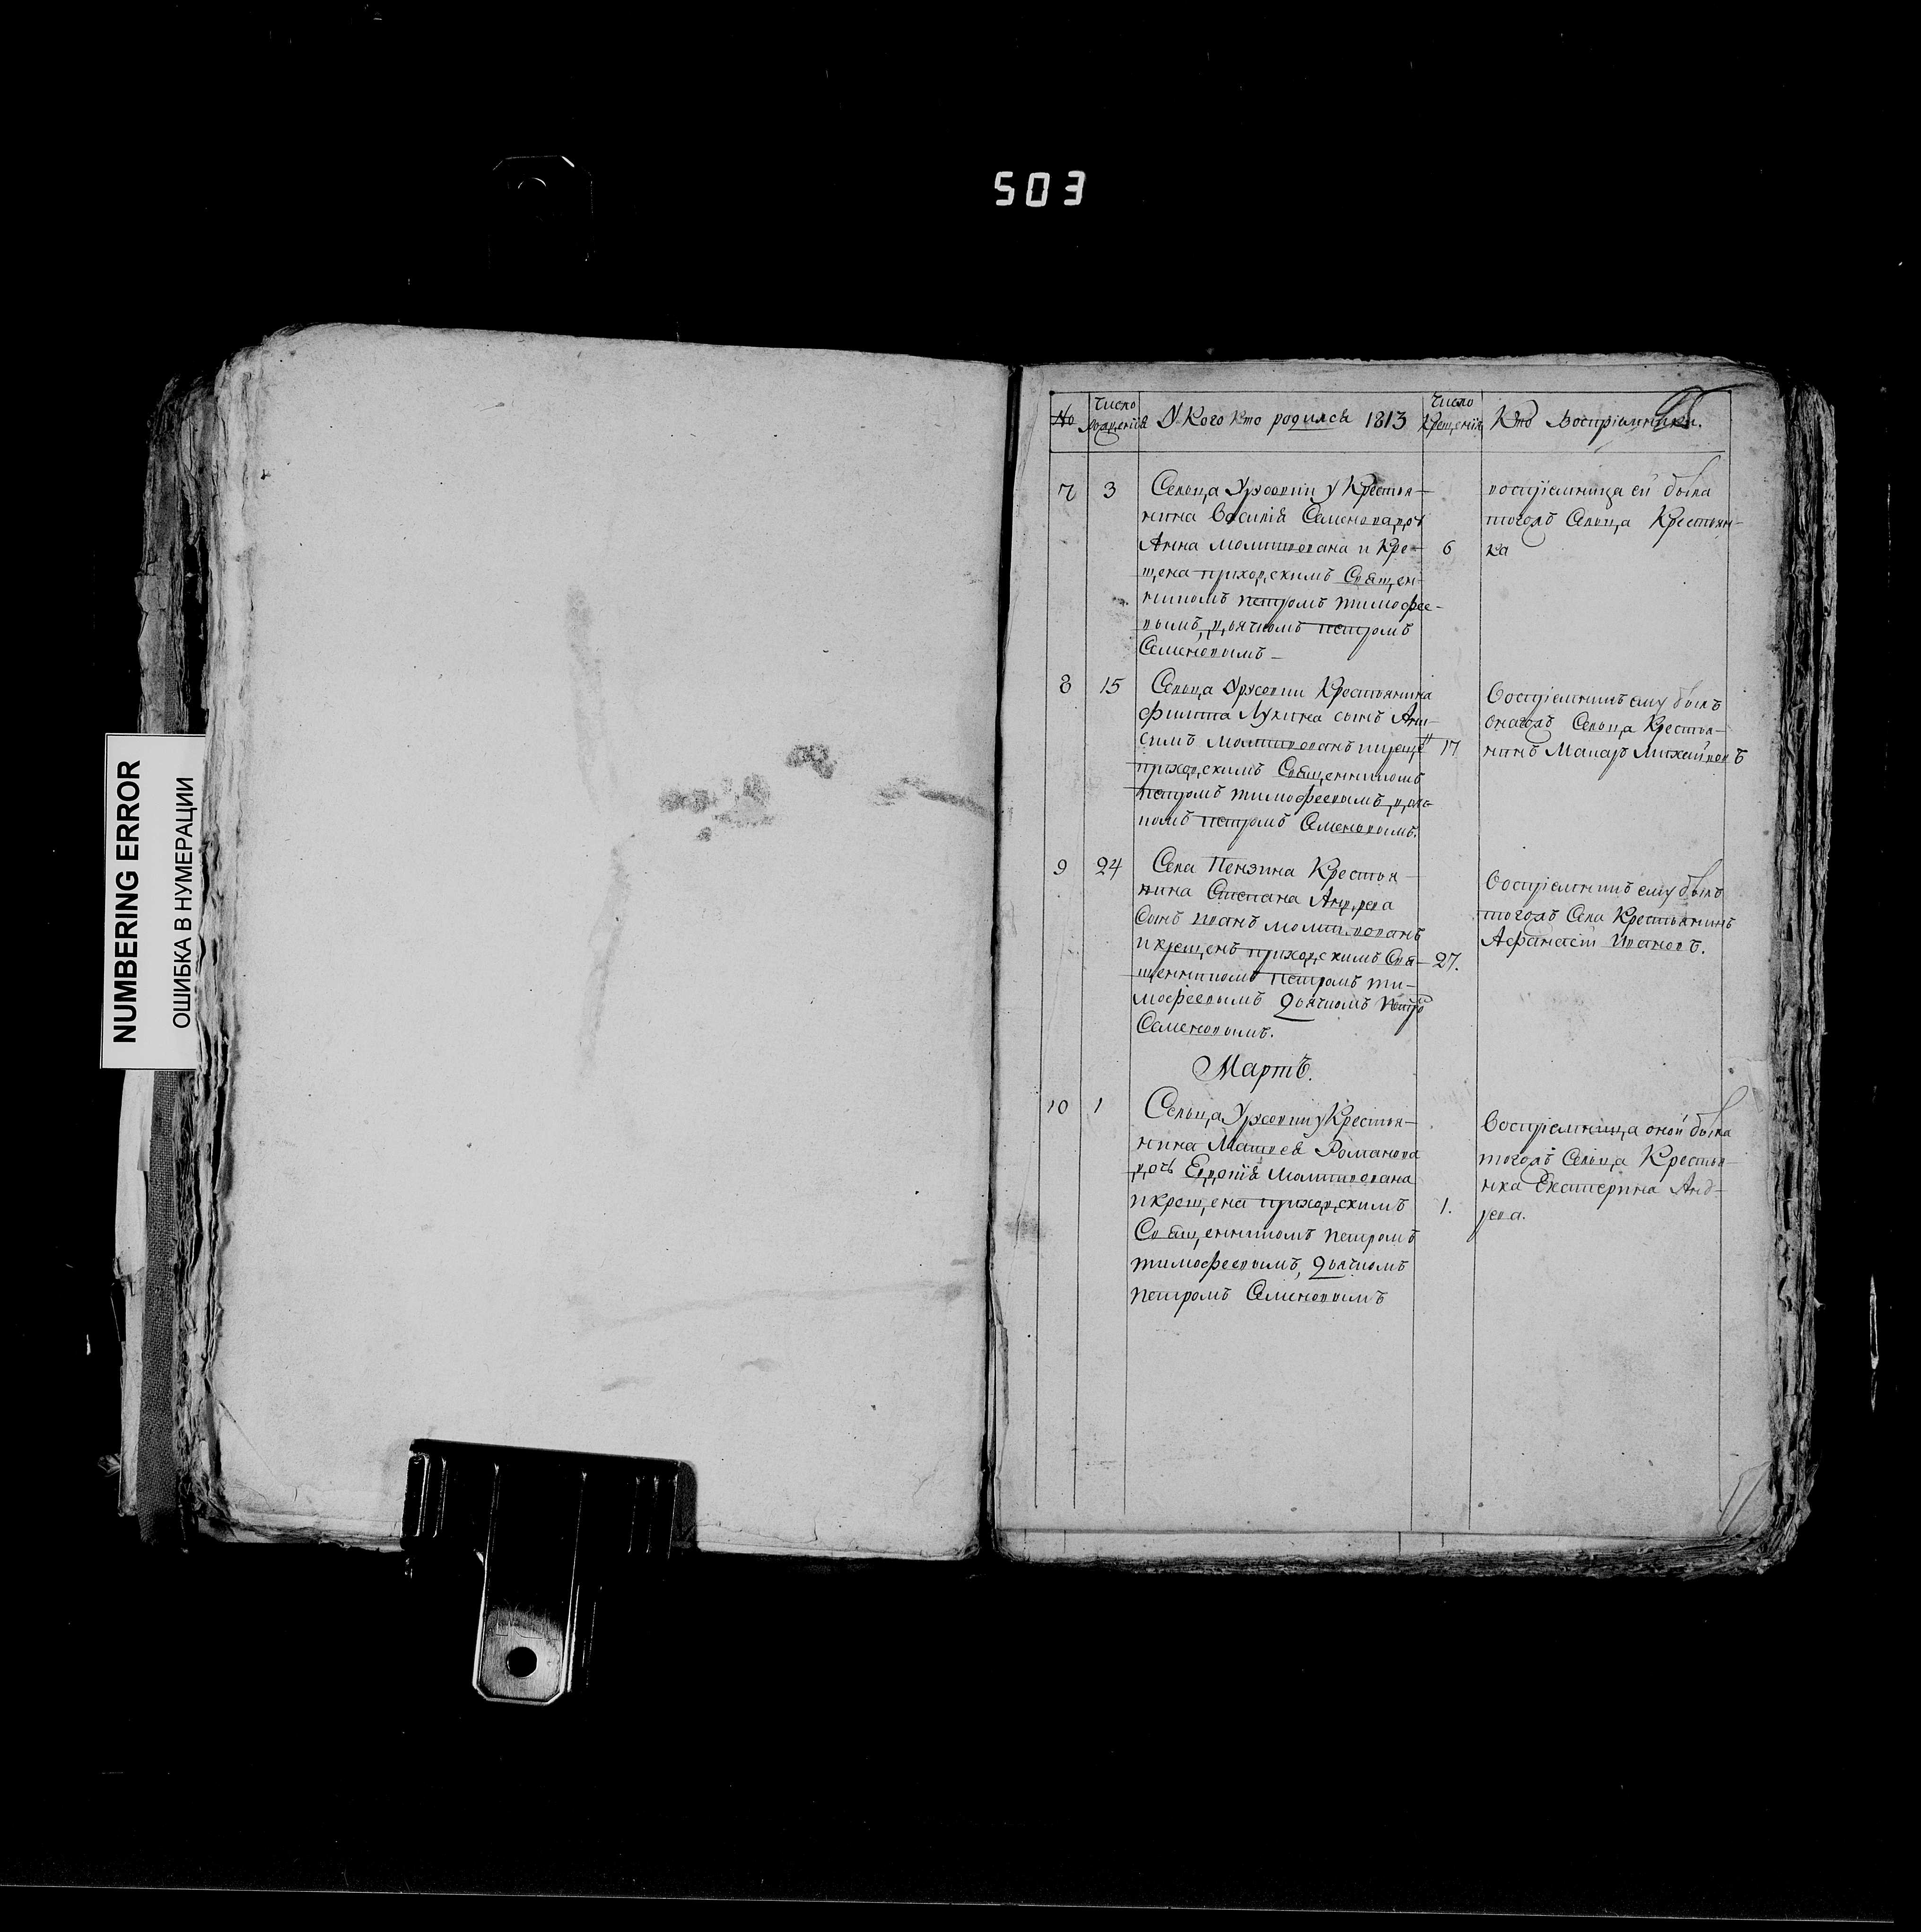 503
NUMBERING ERROR
ОШИБКА В НУМЕРАЦИИ
№
Число рождения
У Кого кто родился 1813
Число Крещения
Кто воспріемники.
7 3
Сельца у Крестья-
нина Василія Семенова дочь
Анна молитвована и Кре-
щена приходскимъ Священ-
никомъ петромъ тимофее-
вымъ, дьячкомъ петромъ
Семеновымъ
6
воспріемница ей была
тогожъ Сельца Крестьян-
ка
8 15
Сельца Крестьянина
Филипа Лукина сынъ Ани-
симъ молитвованъ
приходскимъ Священникомъ
петромъ тимофеевымъ, дьяч-
комъ петромъ Семеновымъ.
17
Воспріемникъ ему былъ
Сельца Крестья-
нинъ Макаръ Михайловъ
9 24
Села Пензина Крестья-
нина Степана Андрева
Сынъ иванъ молитвованъ
и крещенъ приходскимъ Свя-
щенникомъ петромъ ти-
мофеевымъ дьячкомъ петро
Семеновымъ.
27.
Воспріемникъ ему былъ
тогожъ Села Крестьянинъ
Афанасей Ивановъ.
Мартъ.
10 1
Сельца у Крестья-
нина Матвея Романова
дочь Евдокія Молитвована
и крещена приходскимъ
Священникомъ петромъ
тимофеевымъ, дьячкомъ
петромъ Семеновымъ
1.
Воспріемница оной была
тогожъ Сельца Крестья-
нка Екатерина Анд-
рева.